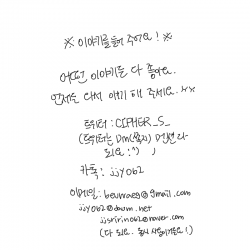 ※ 이야기를 들어 주어요! ※
어떤 이야기든 다 좋아요.
언제든 다시 얘기해 주세요. ^^
트위터 : CIPHER_S_
(트위터는 Dm(쪽지) 멘션 다
되요 :^) )
카톡 : jjy062
이메일 : beuraeg@gmail.com
jjy062@daum.net
jjsririn062@naver.com
(다 되요.